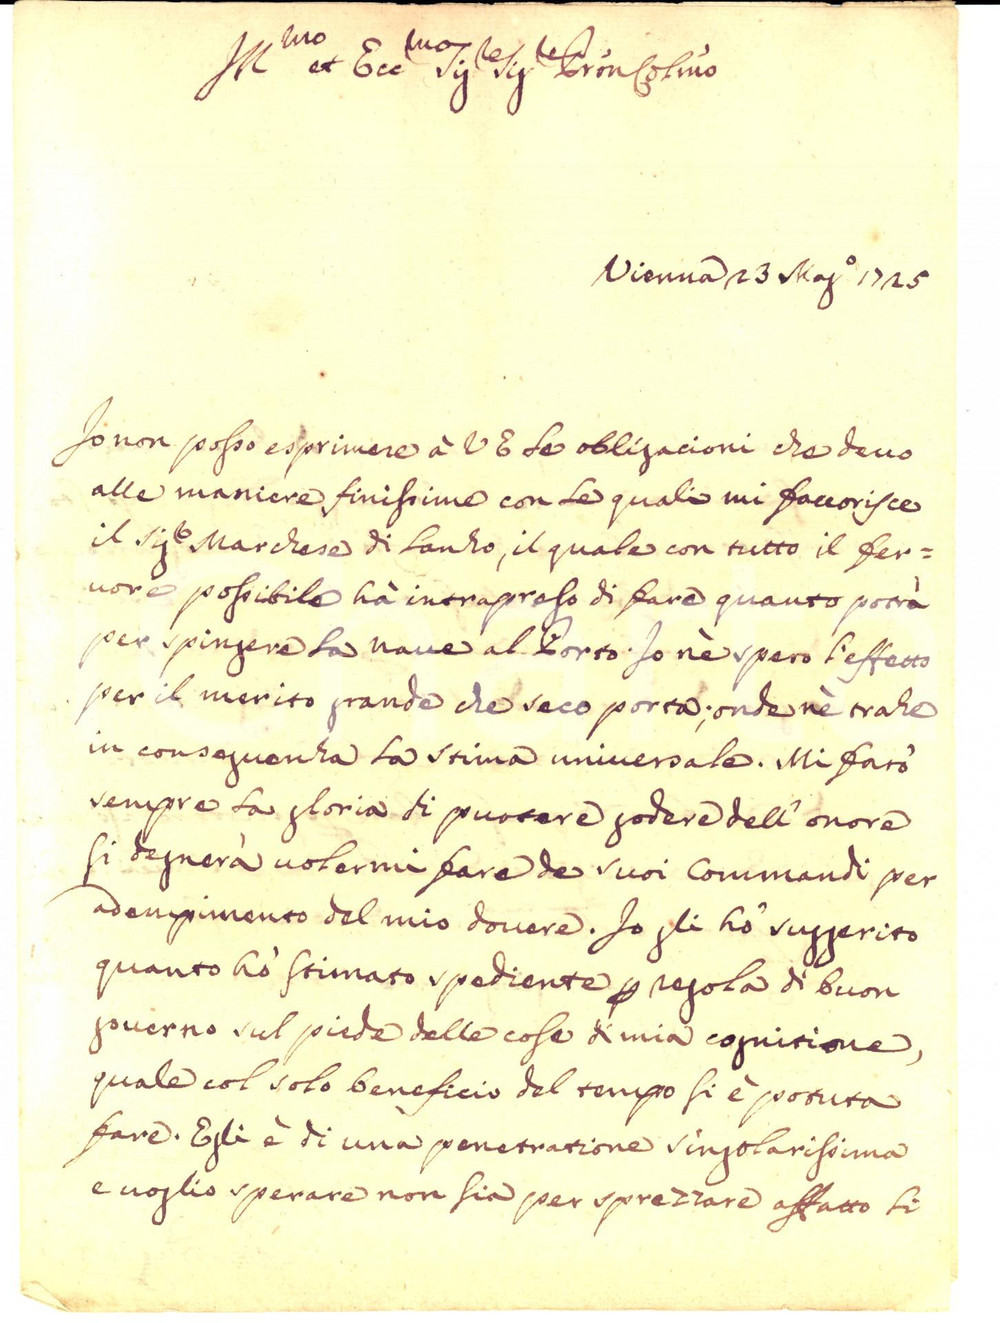 Ill.mo et Ecc.mo Sig.re Sig.re P.ron Col.mo
Vienna 23 Mag.o 1725
Io non posso esprimere à V E le obligacioni che devo
alle maniere finissime con le quali mi favorisce
il Sig.r Marchese di Lanzo, il quale con tutto il fer=
vore possibile hà intrapreso di fare quanto potrà
per spingere la nave al Porto. Io nè spero l'effetto
per il merito grande che seco porta; onde nè trahe
in conseguenza la stima universale. Mi farò
sempre la gloria di puotere godere dell'onore
si degnerà volermi fare de suoi Commandi per
adempimento del mio dovere. Io gli hò suggerito
quanto hò stimato spediente p regola di buon
governo sul piede delle cose di mia cognitione,
quale col solo beneficio del tempo si è potuta
fare. Egli è di una penetratione singolarissima
e voglio sperare non sia per sprezzare affatto li